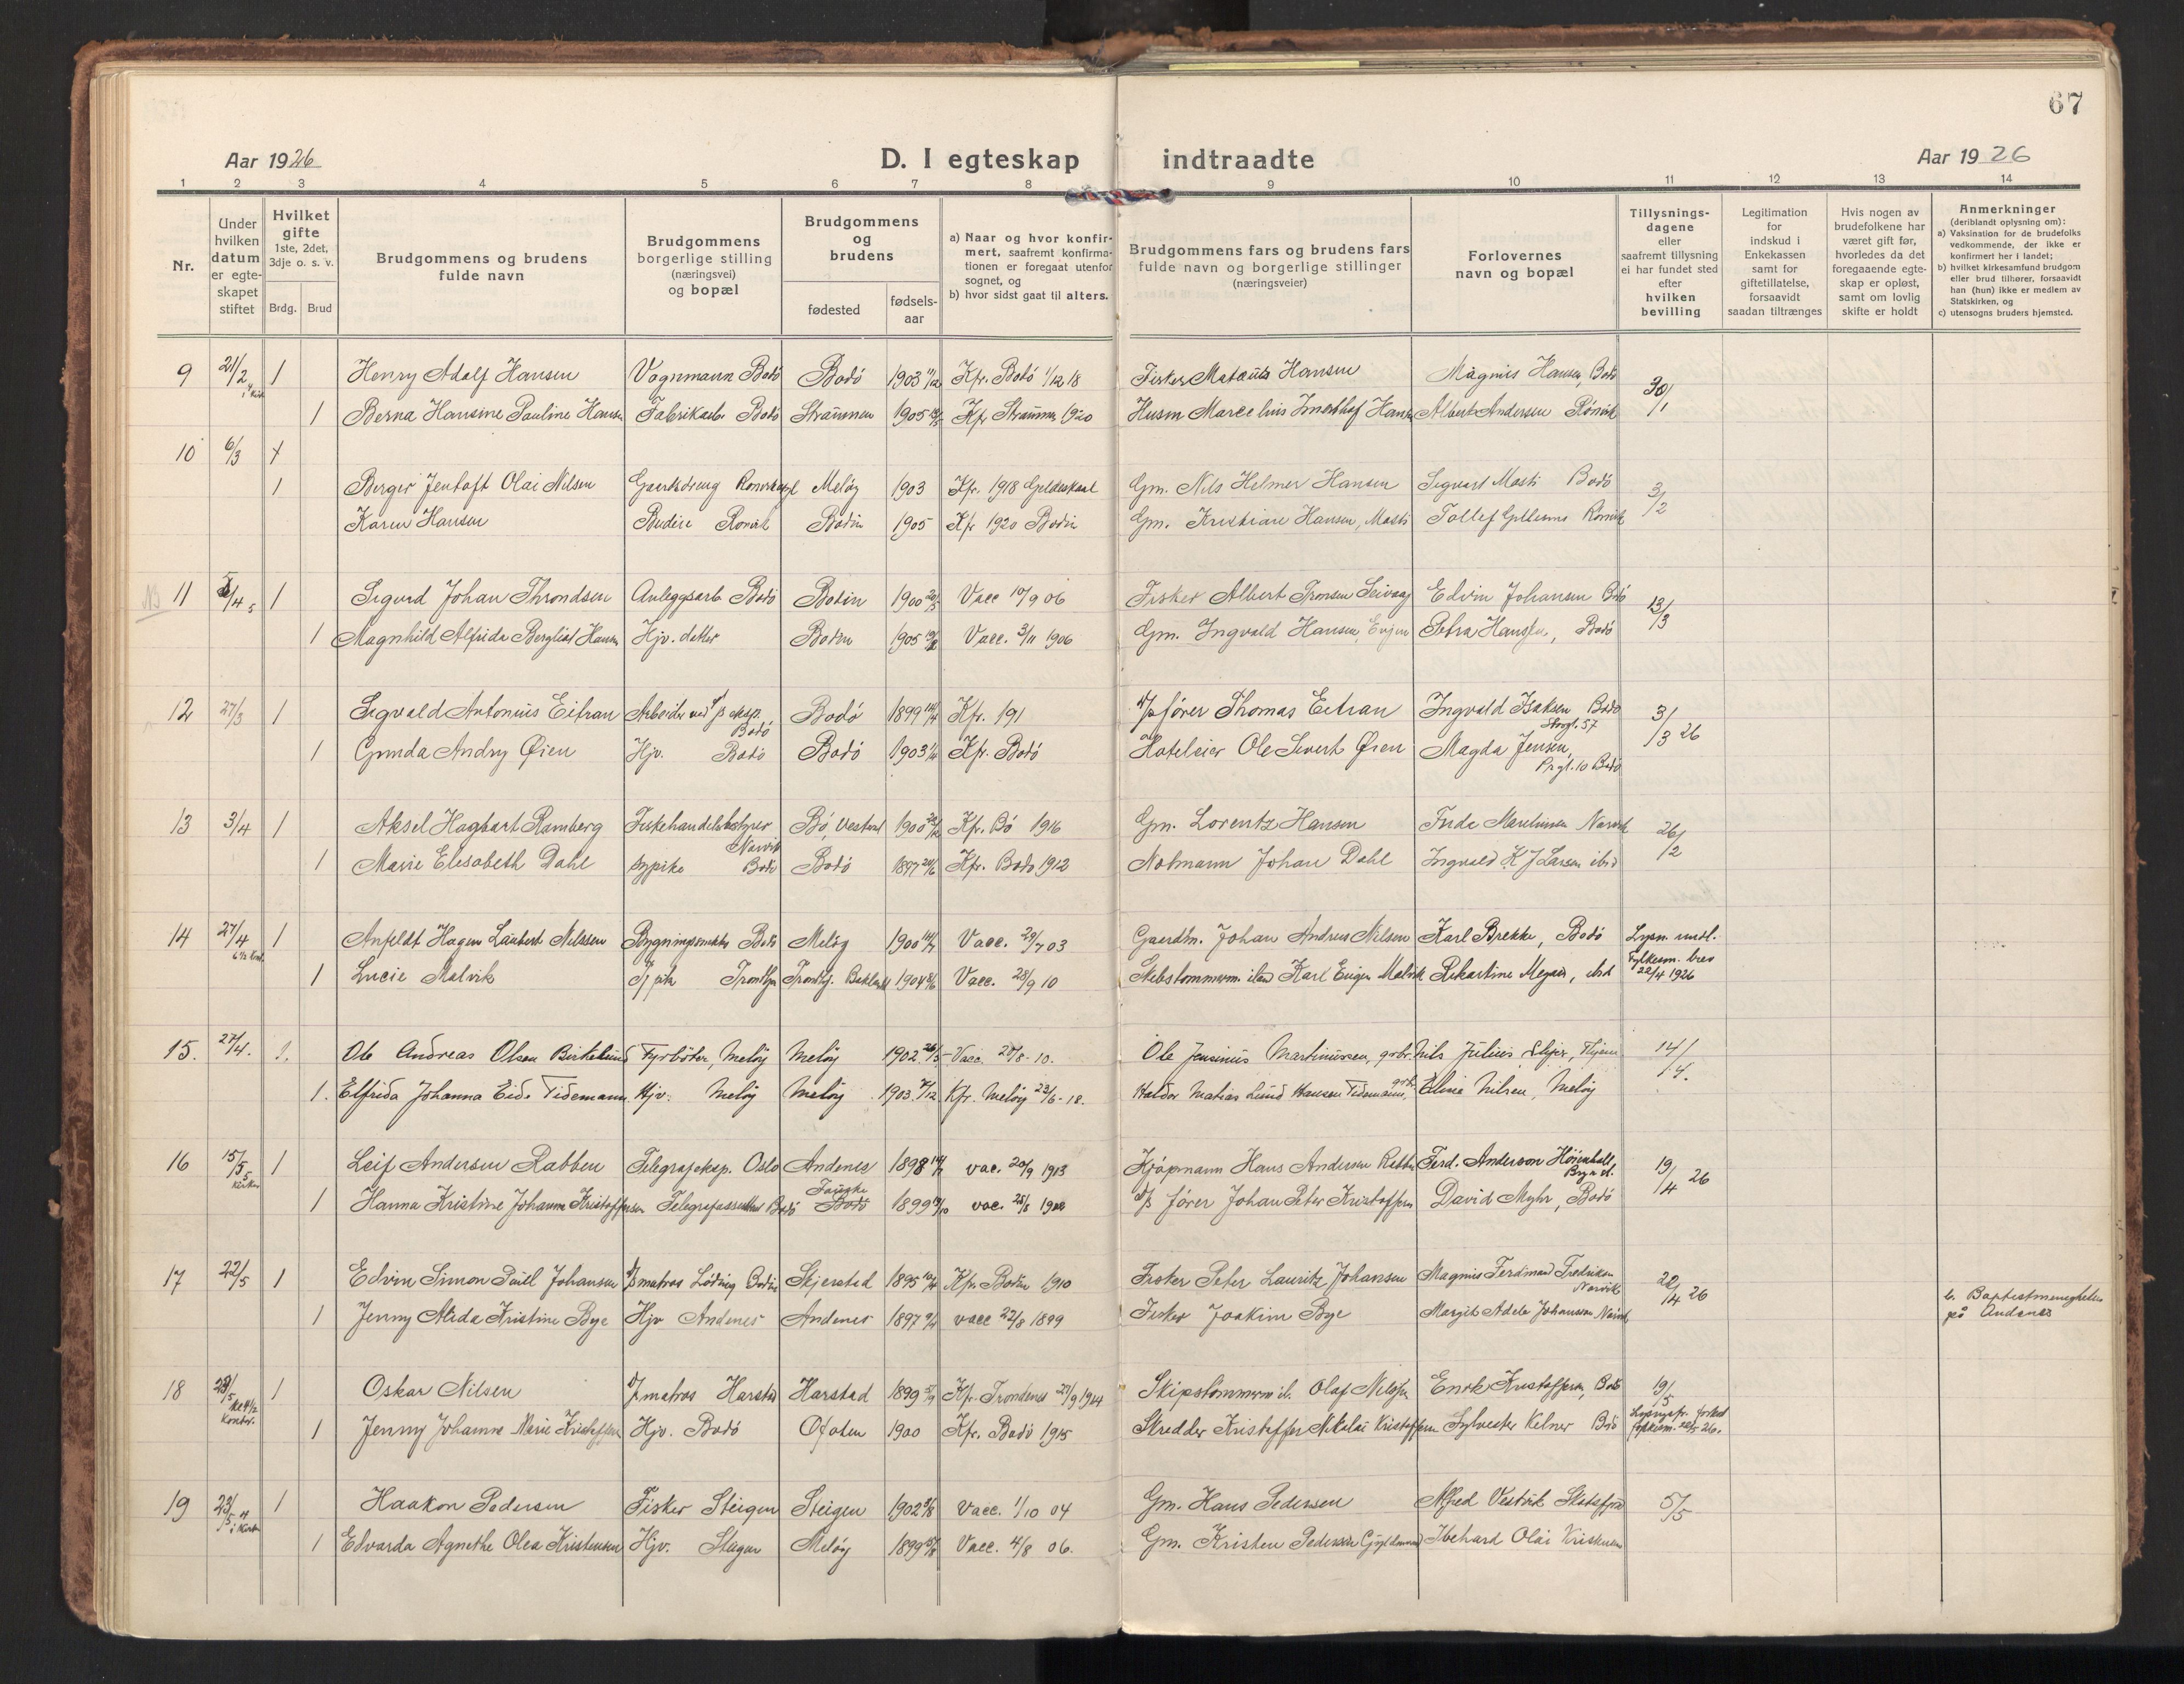 67
Aar 1926
D. I egteskap indtraadte
Aar 1926
1 2 3 4 5 6 7 8 9 10 11 12 13 14
Nr.
Under hvilken datum er egteskapet stiftet
Hvilket gifte 1ste, 2det, 3dje o. s. v.
Brdg. Brud
Brudgommens og brudens fulde navn
Brudgommens borgerlige stilling (næringsvei) og bopæl
Brudgommens og brudens
fødested
fødselsaar
a) Naar og hvor konfirmert, saafremt konfirmationen er foregaat utenfor sognet, og
b) hvor sidst gaat til alters.
Brudgommens fars og brudens fars fulde navn og borgerlige stillinger (næringsveier)
Forlovernes navn og bopæl
Tillysningsdagene eller saafremt tillysning ei har fundet sted efter hvilken bevilling
Legitimation for indskud i Enkekassen samt for giftetillatelse, forsaavidt saadan tiltrænges
Hvis nogen av brudefolkene har været gift før, hvorledes da det foregaaende egteskap er opløst, samt om lovlig skifte er holdt
Anmerkninger (deriblandt oplysning om):
a) Vaksination for de brudefolks vedkommende, der ikke er konfirmert her i landet;
b) hvilket kirkesamfund brudgom eller brud tilhører, forsaavidt han (hun) ikke er medlem av Statskirken, og
c) utensogns bruders hjemsted.
9 21/2 1 Henry Adolf Hansen Vognmann Bodö Bodö 1903 11/12 Kfr. Bodö 1/12 18 Fisker Hansen Magnus Hansen, Bodö 30/1
1 Berna Hansine Pauline Hansen Fabrikarb. Bodö Strømmen 1905 Kfr Strømmen 1920 Husm Marcelius Hansen Albert Andersen Rönvik
10 6/3 1
1 Berger Jentoft Olai Nilsen Gaardsdreng Meløy 1903 Kfr. 1918 Gildeskaal Gm. Nils Helmer Hansen Sigvart Mosti Bodö 3/2
Karen Hansen Budeie Rønvik Bodin 1905 Kfr 1920 Bodin Gm. Kristian Hansen, Mosti Tollef Rönvik
NB 11 5/4 1 Sigurd Johan Throndsen Anleggsarb Bodö Bodin 1900 Vacc 17/9 06 Fisker Albert Tronsen Seivaag Edvin Johansen Bdö 13/3
1 Magnhild Alfrida Bergliot Hansen Hjv. datter Bodin 1905 Vacc. 3/11 1906 Gm. Ingvald Hansen, Evjen Petra Hansen, Bodö
12 27/3 1 Sigvald Antonius Eitran Arbeider ved D/s eksp. Bodö Bodö 1899 Kfr. 191 D/s förer Thomas Eitran Ingvald Isaksen Bodö Storgt. 57 3/3 26
1 Gunda Andry Øien Hjv. Bodö Bodö 1903 Kfr. Bodö Hoteleier Ole Sivert Øien Magda Jensen, Pr gt. 10 Bodö
13 3/4 1 Aksel Hagbart Ramberg Fiskehandelsbestyrer Narvik Bö, Vesteraal 1900 Kfr. Bö 1916 Gm. Lorentz Hansen Narvik 26/2
1 Marie Elisabeth Dahl Sypike Bodö Bodö 1897 Kfr. Bodö 1912 Notmann Johan Dahl Ingvald K J Larsen ibid
14 27/4 1 Anfeldt Hagen Laubert Nilssen Bygningssnekker Bodö Meløy 1900 14/7 Vacc. 29/7 03 Gaardm. Johan Andreas Nilsen Karl Brekke, Bodö Lysn. undl. Fylkesm. brev 22/4 1926
1 Lucie Malvik Trondhj. Baklandet 1904 Vacc. 28/9 10 Skibstømmerm. Karl Eugen Malvik Rikartine Meyer, ibid
15. 27/4. 1. Ole Andreas Olsen Birkelund Fyrböter, Melöy Melöy 1902 26/3 Vacc. 27/8-10. Ole Jensinius Martinussen, grbr. Nils Julius 14/4.
1. Elfrida Johanna Eide Tidemann Hjv. Melöy Melöy 1903. 7/12 Kfr. Melöy 23/6-18. Haldor Matias Lund Hansen Tidemann, grbr. Eline Nilsen, Melöy
16 15/5 kirken 1 Leif Andersen Rabben Telegrafeksp. Oslo Andenes 1898 14/7 vac. 20/9 1913 Kjöpmann Hans Andersen Rabben Ferd. Anderson Höienhall, Bryn st. 19/4 26
1 Hanna Kristine Johanne Kristoffersen Telegrafassistent Bodö Fauske Bodö 1899 vac. 25/8 1902 D/s förer Johan Peter Kristoffersen David Myhr, Bodö
17 22/5 1 Edvin Simon Paul Johansen D/s matros Löding Bodin Skjerstad 1895 Kfr. Bodin 1910 Fisker Peter Lauritz Johansen Magnus Ferdinand Fredriksen Narvik 20/4 26
1 Jenny Alida Kristine Bye Hjv Andenes Andenes 1897 vacc 22/8 1899 Fisker Joakim Bye Margit Adele Johansen Narvik b. Baptistmenigheten på Andenes
18 28/5 kl 4 1/2 kontor. 1 Oskar Nilsen D/s matros Harstad Harstad 1899 Kfr. Trondenes 27/9 1914 Skipstømmerm. Olaf Nilssen Enok Kristoffersen, Bodö 19/5
1 Jenny Johanne Marie Kristoffersen Hjv. Bodö Ofoten 1900 Kfr. Bodö 1915 Skredder Kristoffer Nikolai Kristoffersen Sylvester Kelner Bdö
19 23/5 i kirken 1 Haakon Pedersen Fisker Steigen Steigen 1902 3/8 Vacc. 1/10 04 Gm. Hans Pedersen Alfred Vestvik 5/5
1 Edvarda Agnethe Olea Kristensen Hjv. Steigen Meløy 1899 Vacc. 4/8 06. Gm. Kristen Pedersen Olai Kristensen